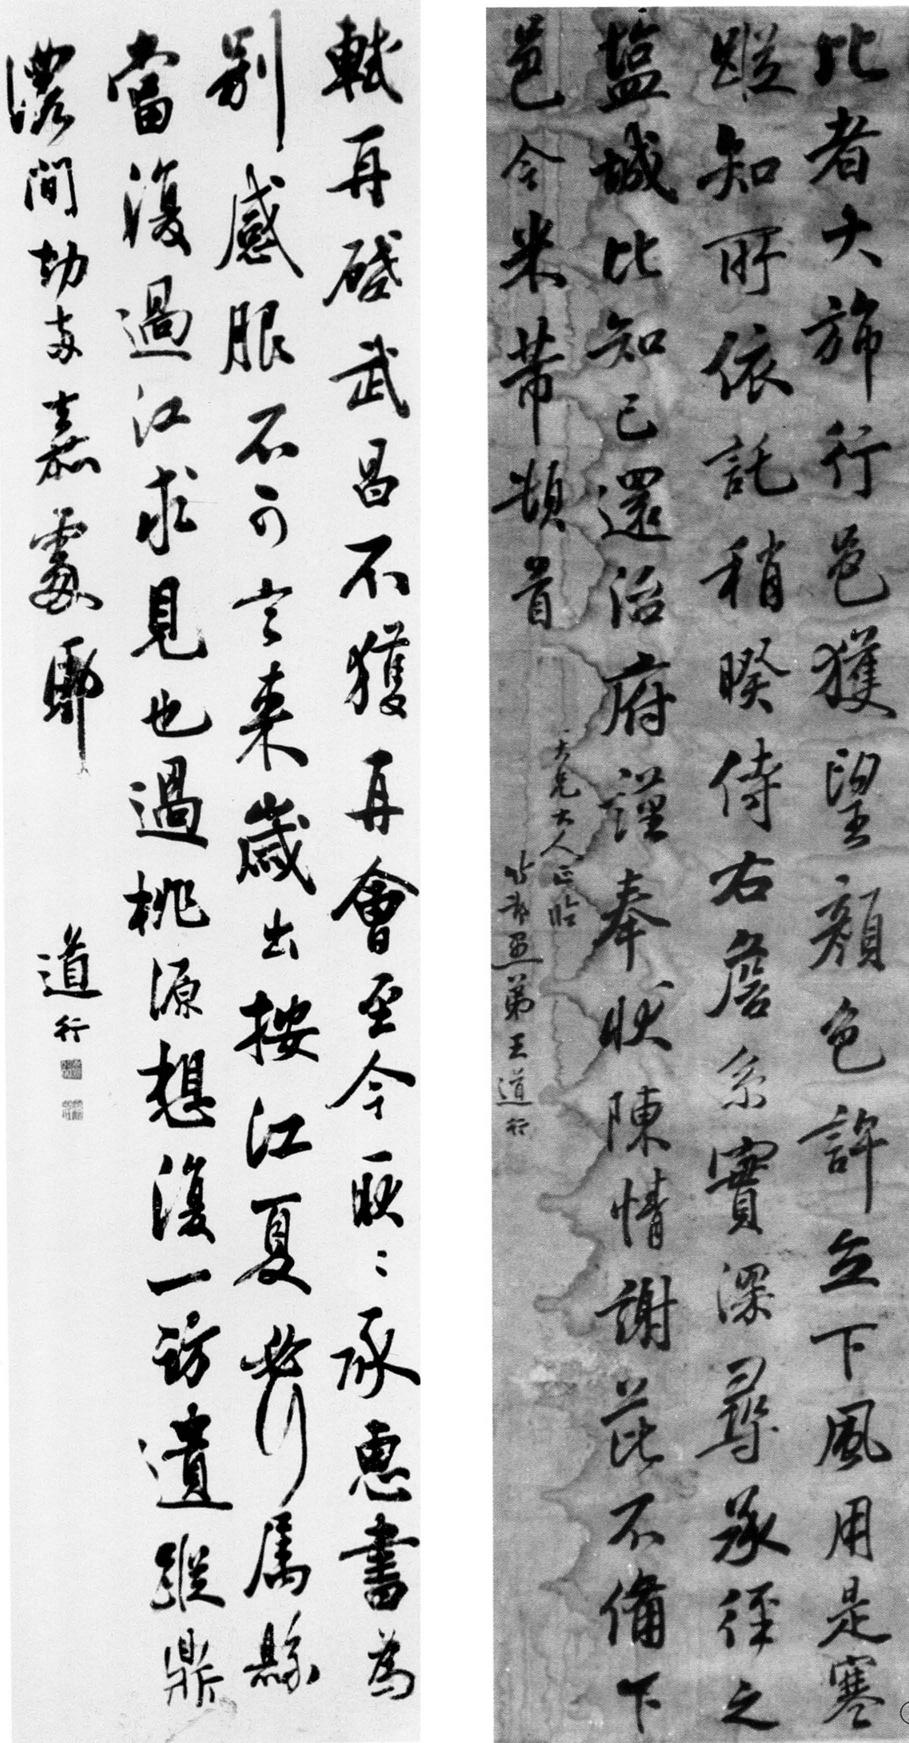 比者大旆行邑獲望顏色許立下風用是寒
蹤知所依託稍暌侍右詹系實深尋承徑之
塩城比知已還治府謹奉狀陳情謝茈不備下
邑令米芾頓首
大兄大人正臨
愚弟王道行
軾再啓武昌不獲再會至今耿〻承惠書為
別感服不可言来歲出按江夏北行属縣
當復過江求見也過桃源想復一訪遺蹤鼎
澧間勃 嘉處
道行